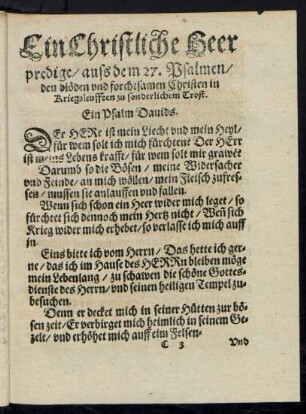 Ein Christliche Heer
predige/ auss dem 27. Psalmen/
den blöden vnd forchtsamen Christen in
Kriegsleufften zu sonderlichem Trost.
Ein Psalm Dauids.
DEr HERr ist mein Liecht vnd mein Heyl/
für wem solt ich mich fürchten! Der HErr
ist meins Lebens krafft/ für wem solt mir grawē!
Darumb so die Bösen/ meine Widersacher
vnd Feinde/ an mich wöllen/ mein Fleisch zufres-
sen/ müssen sie anlauffen vnd fallen.
Wenn sich schon ein Heer wider mich leget/ so
fürchtet sich dennoch mein Hertz nicht/ Weñ sich
Krieg wider mich erhebet/ so verlasse ich mich auff
jn.
Eins bitte ich vom Herrn/ Das hette ich ger-
ne/ das ich im Hause des HERRn bleiben möge
mein Lebenlang/ zu schawen die schöne Gottes-
dienste des Herrn/ vnd seinen heiligen Tempel zu-
besuchen.
Denn er decket mich in seiner Hütten zur bö-
sen zeit/ Er verbirget mich heimlich in seinem Ge-
zelt/ vnd erhöhet mich auff eim Felsen-
C 3 Vnd